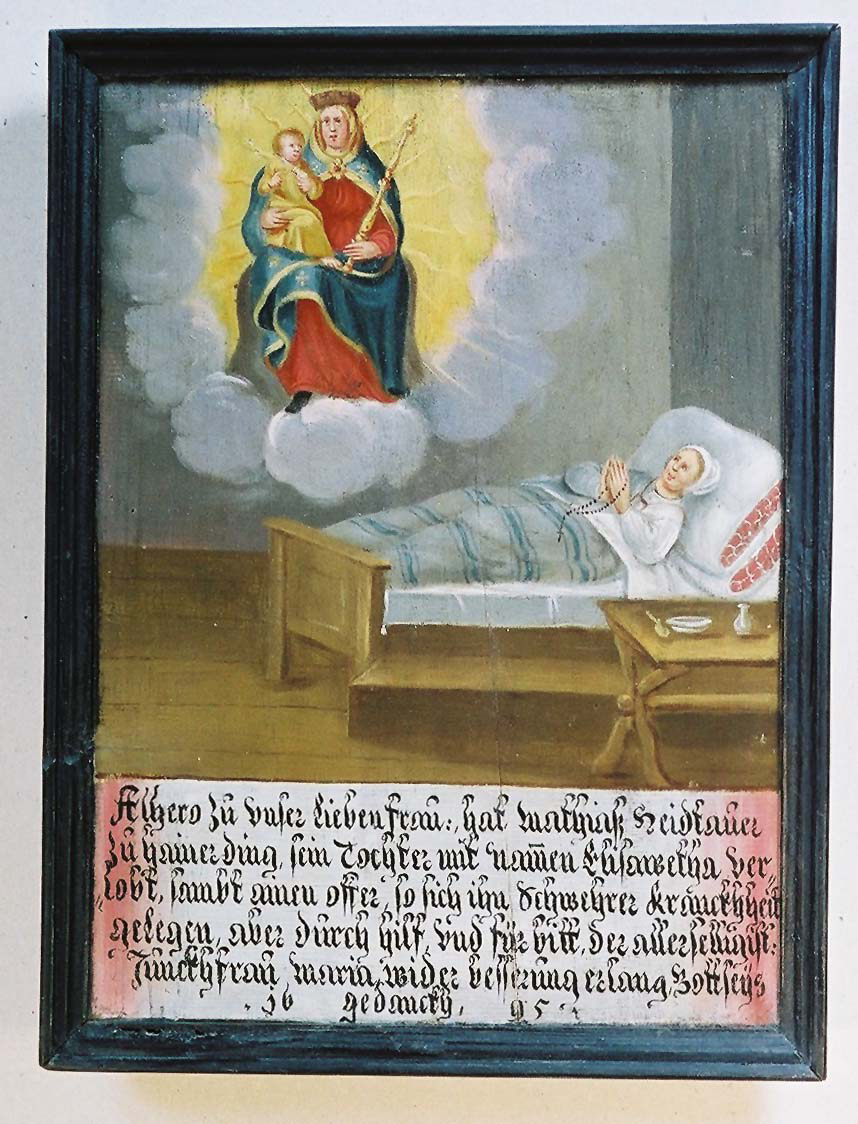 Alhero zu vnser lieben frau:, hat mathiaß Heidtauer
zu hainerding, sein Tochter mit namen Elisawetha ver„
„lobt, sambt ainen offer, so sich ihn Schwehrer kranckhheit
gelegen, aber durch hilf, vnd für bitt, der allerseeligist:
Junckhfrau maria, wider besserung erlang, Gottseys
. 16 gedanckh. 95 .